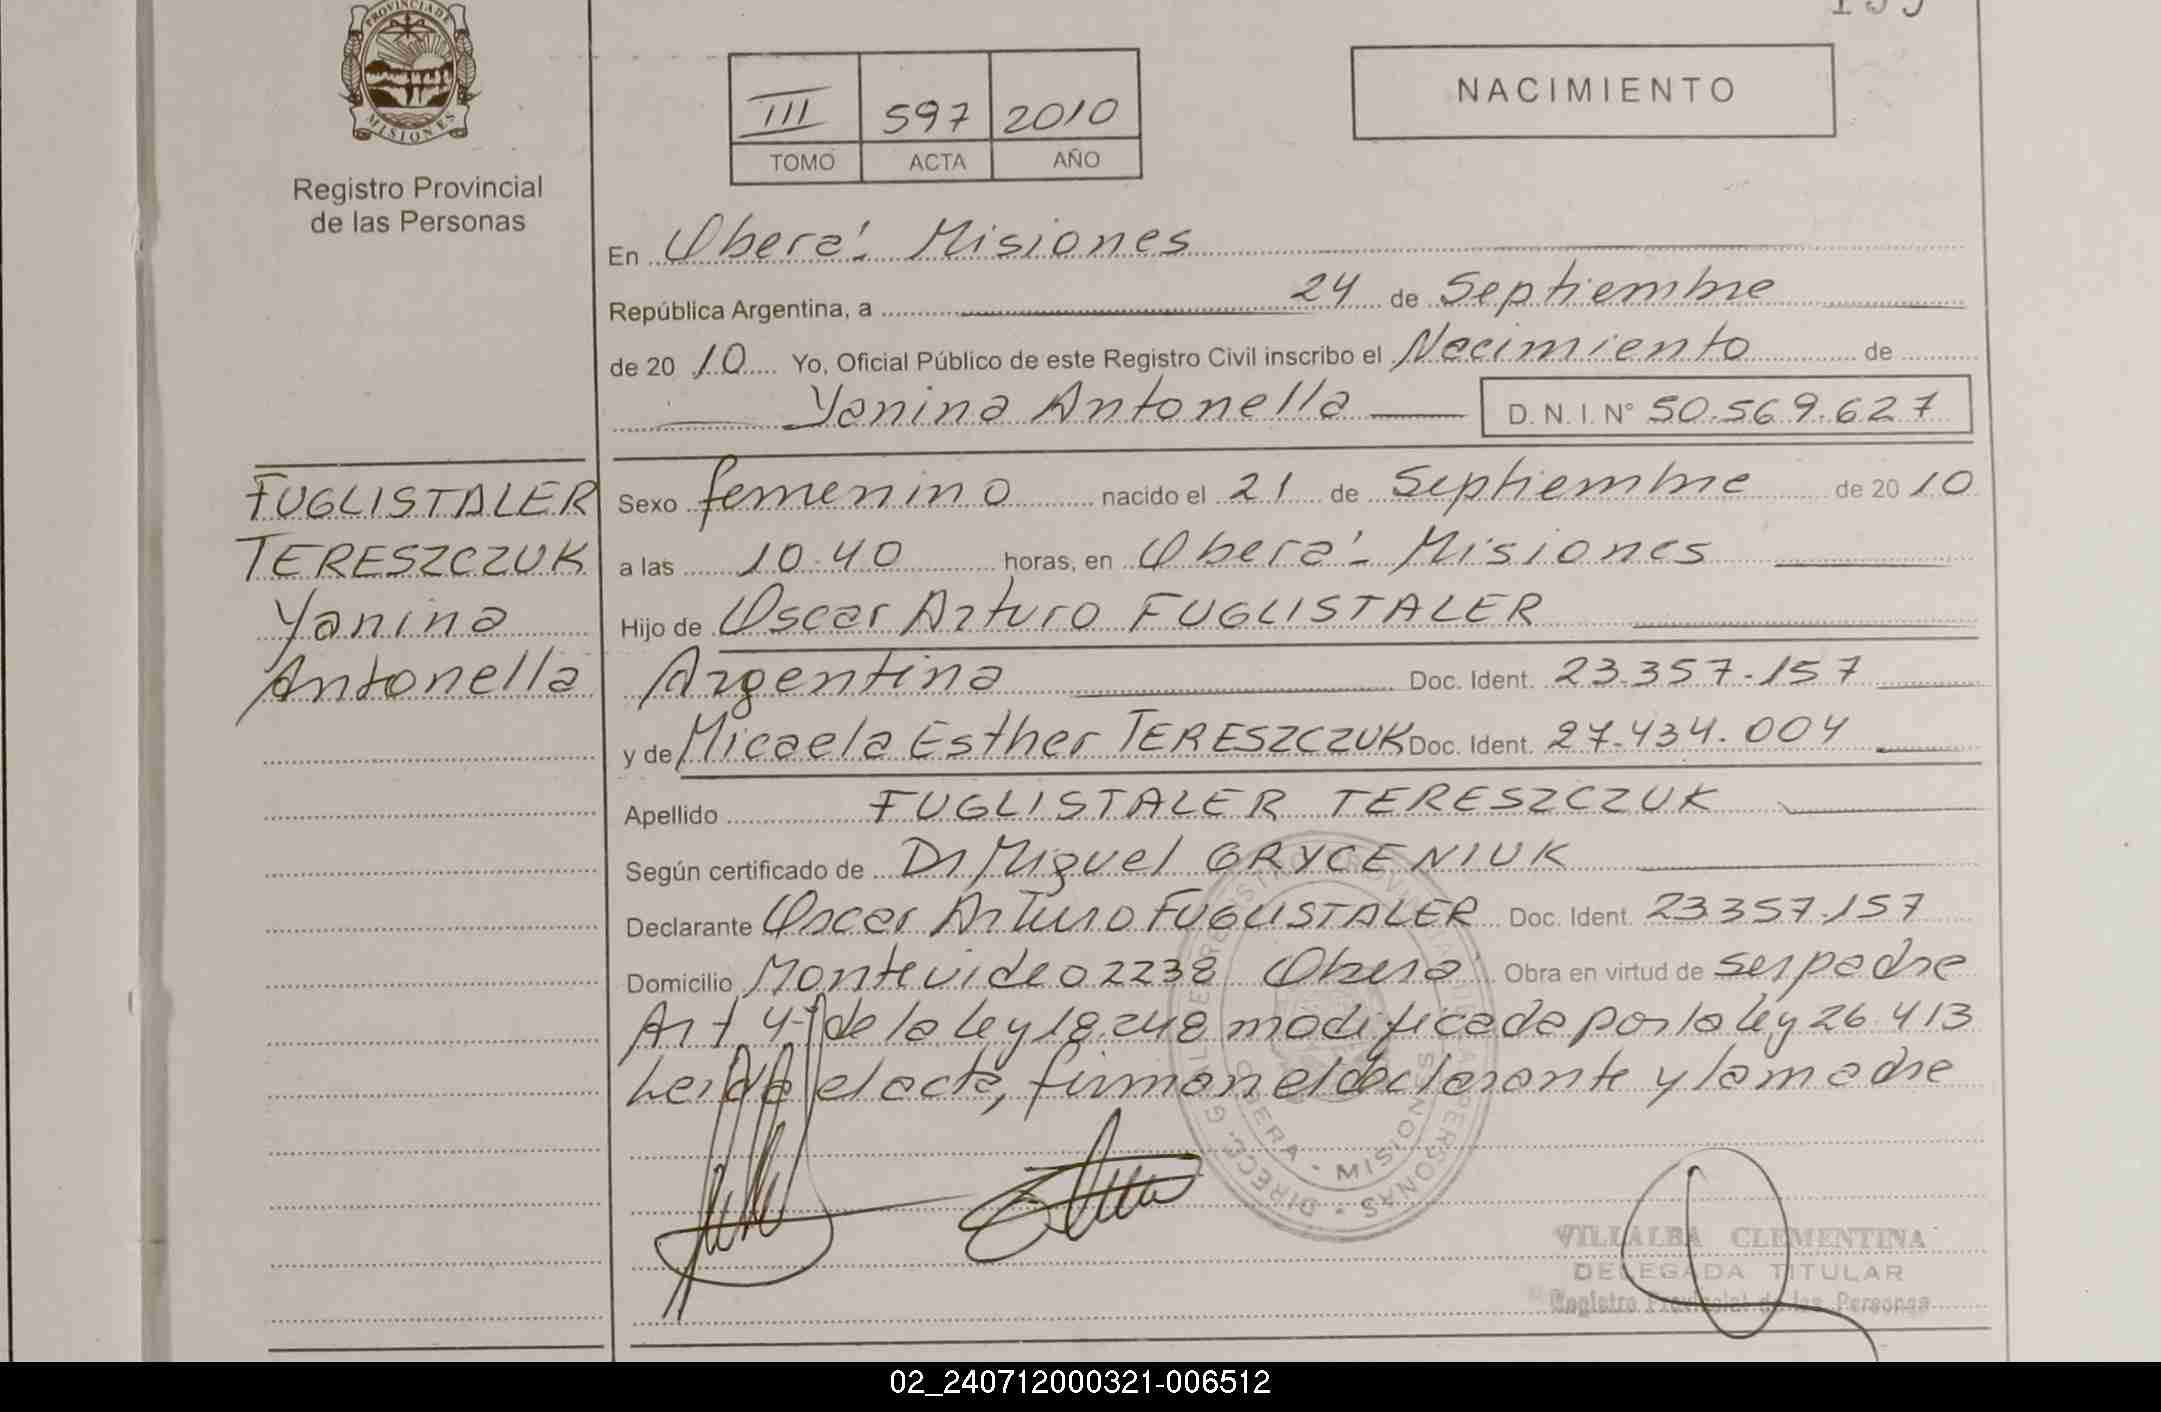 PROVINCIA DE
MISIONES
Registro Provincial
de las Personas
III 597 2010
TOMO ACTA AÑO
NACIMIENTO
En Oberá - Misiones
República Argentina, a 24 de Septiembre
de 20 10 Yo, Oficial Público de este Registro Civil inscribo el Nacimiento de
Yanina Antonella D.N.I. N° 50.569.627
FUGLISTALER
TERESZCZUK
Yanina
Antonella
Sexo femenino nacido el 21 de Septiembre de 20 10
a las 10.40 horas, en Oberá - Misiones
Hijo de Oscar Arturo FUGLISTALER
Argentina Doc. Ident. 23.357.157
y de Micaela Esther TERESZCZUK Doc. Ident. 27.434.004
Apellido FUGLISTALER TERESZCZUK
Según certificado de Dr Miguel GRYCENIUK
Declarante Oscar Arturo FUGLISTALER Doc. Ident. 23357.157
Domicilio Montevideo 2238 Oberá Obra en virtud de ser padre
Art 4º de la ley 18.248 modificada por la ley 26.413
Leída el acta, firman el declarante y la madre
OBERA - MISIONES
VILLALBA CLEMENTINA
DELEGADA TITULAR
Registro Provincial de las Personas
02_240712000321-006512